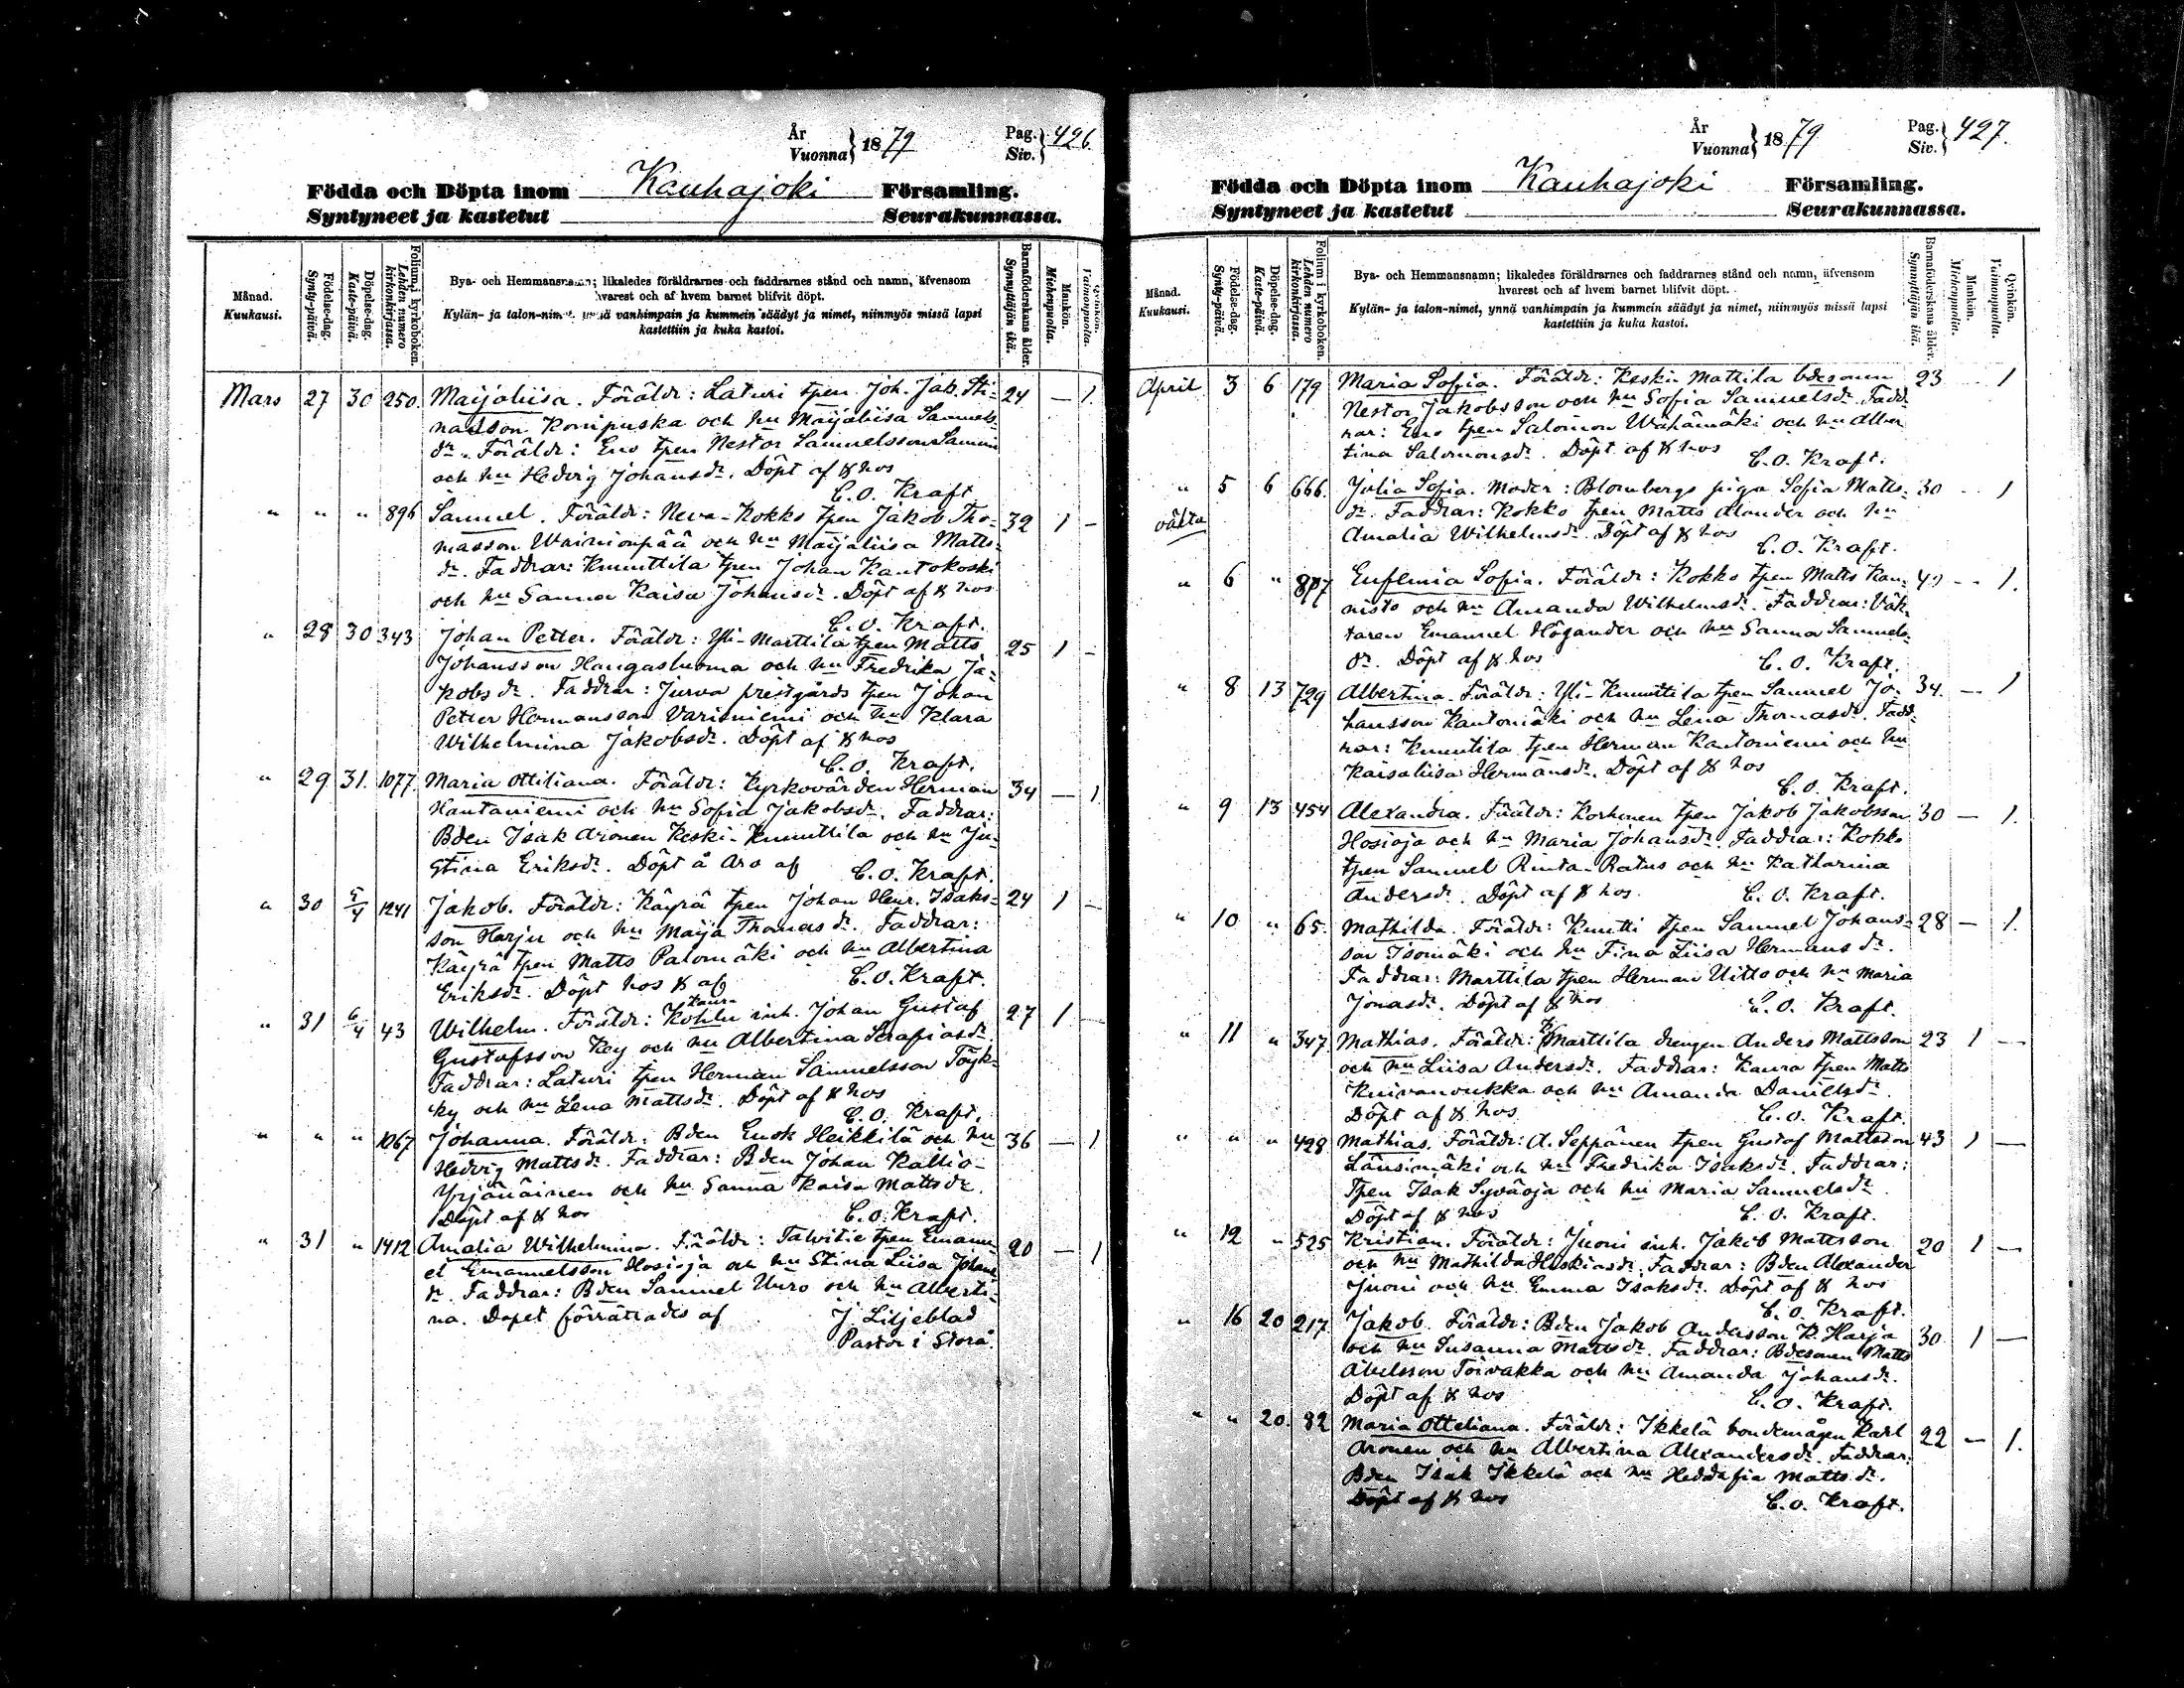 År
Vuonna } 1879
Pag.
Siv. } 426.
Födda och Döpta inom Kauhajoki Församling.
Syntyneet ja kastetut Seurakunnassa.
Månad.
Kuukausi.
Födelse-dag.
Synty-päivä.
Döpelse-dag.
Kaste-päivä.
Folium i kyrkoboken.
Lehden numero
kirkonkirjassa.
Bya- och Hemmansnamn; likaledes föräldrarnes och faddrarnes stånd och namn, äfvensom
hvarest och af hvem barnet blifvit döpt.
Kylän- ja talon-nimet, ynnä vanhimpain ja kummein säädyt ja nimet, niinmyös missä lapsi
kastettiin ja kuka kastoi.
Barnaföderskans ålder.
Synnyttäjän ikä.
Mankön.
Miehenpuolia.
Qvinkön.
Vaimonpuolia.
Mars 27 30 250. Maijaliisa. Föräldr: Laturi tpen Joh. Jak. Sti- 24 — 1.
nasson Konipuska och hu Maijaliisa Samuels-
dr. Föräldr: Eno tpen Nestor Samuelsson Sammi
och hu Hedvig Johansdr. Döpt af & hos
C. O. Kraft
" " " 896 Samuel. Föräldr: Neva-Kokko tpen Jakob Tho- 32 1 -
masson Wainionpää och hu Maijaliisa Matts-
dr. Faddrar: Knuuttila tpen Johan Kantokoski
och hu Sanna Kaisa Johansdr. Döpt af & hos
C. O. Kraft.
" 28 30 343 Johan Petter. Föräldr: Yli-Marttila tpen Matts 25 1 -
Johansson Hangasluoma och hu Fredrika Ja-
kobsdr. Faddrar: Jurva prestgårds tpen Johan
Petter Hermansson Varisniemi och hu Klara
Wilhelmina Jakobsdr. Döpt af & hos
C. O. Kraft.
" 29 31. 1077 Maria Ottiliana. Föräldr: Kyrkovärden Herman 34 — 1
Hantaniemi och hu Sofia Jakobsdr. Faddrar:
Bden Isak Aronen Keski-Knuuttila och hu Ju-
stina Eriksdr. Döpt å Aro af C. O. Kraft.
" 30 5/4 1241 Jakob. Föräldr: Käyrä tpen Johan Henr. Isaks- 24 1 -
son Harju och hu Maija Thomasdr. Faddrar:
Käyrä tpen Matts Palomäki och hu Albertina
Eriksdr. Döpt hos & af C. O. Kraft.
" 31 6/4 43 Wilhelm. Föräldr: inh. Johan Gustaf 27 1 —
Gustafsson Key och hu Albertina Serafiasdr.
Faddrar: Laturi tpen Herman Samuelsson Töyk-
ky och hu Lena Mattsdr. Döpt af & hos
C. O. Kraft.
" " " 1067 Johanna. Föräldr: Bden Enok Heikkilä och hu 36 — 1
Hedvig Mattsdr. Faddrar: Bden Johan Kallio-
Yrjänäinen och hu Sanna Kaisa Mattsdr.
Döpt af & hos C. O. Kraft.
" 31 " 1412 Amalia Wilhelmina. Föräldr: Talvitie tpen Emanu- 20 — 1
el Emanuelsson Hosioja och hu Stina Liisa Johans-
dr. Faddrar: Bden Samuel Uuro och hu Alberti-
na. Dopet förrättades af J. Liljeblad
Pastor i Storå.
År
Vuonna } 1879
Pag.
Siv. } 427.
Födda och Döpta inom Kauhajoki Församling.
Syntyneet ja kastetut Seurakunnassa.
Månad.
Kuukausi.
Födelse-dag.
Synty-päivä.
Döpelse-dag.
Kaste-päivä.
Folium i kyrkoboken.
Lehden numero
kirkonkirjassa.
Bya- och Hemmansnamn; likaledes föräldrarnes och faddrarnes stånd och namn, äfvensom
hvarest och af hvem barnet blifvit döpt.
Kylän- ja talon-nimet, ynnä vanhimpain ja kummein säädyt ja nimet, niinmyös missä lapsi
kastettiin ja kuka kastoi.
Barnaföderskans ålder.
Synnyttäjän ikä.
Mankön.
Miehenpuolia.
Qvinkön.
Vaimonpuolia.
April 3 6 179 Maria Sofia. Föräldr: Keski Mattila bdesonen 23 — 1
Nestor Jakobsson och hu Sofia Samuelsdr. Fadd-
rar: Eno tpen Salomon Wähämäki och hu Alber
tina Salomonsdr. Döpt af & hos
C. O. Kraft.
" 5 6 666. Julia Sofia. Moder: Blombergs piga Sofia Matts- 30 — 1
oäkta dr. Faddrar: Kokko tpen Matts Alander och hu
Amalia Wilhelmsdr. Döpt af & hos
C. O. Kraft.
" 6 " 877 Eufemia Sofia. Föräldr: Kokko tpen Matts Kan- — 1.
nisto och hu Amanda Wilhelmsdr. Faddrar: Väk-
taren Emanuel Högander och hu Sanna Samuels-
dr. Döpt af & hos C. O. Kraft.
" 8 13 729 Albertina. Föräldr: Yli-Knuuttila tpen Samuel Jo- 34. — 1
hansson Kantomäki och hu Lena Thomasdr. Fadd-
rar: Knuutila tpen Herman Kantoniemi och hu
Kaisaliisa Hermansdr. Döpt af & hos
C. O. Kraft.
" 9 13 454 Alexandra. Föräldr: Korhonen tpen Jakob Jakobsson 30 — 1.
Hosioja och hu Maria Johansdr. Faddrar: Kokko
tpen Samuel Rinta-Ratus och hu Katharina
Andersdr. Döpt af & hos. C. O. Kraft.
" 10 " 65. Mathilda. Föräldr: Knutti tpen Samuel Johans- 28 — 1.
son Isomäki och hu Fina Liisa Hermansdr.
Faddrar: Marttila tpen Herman Uitto och hu Maria
Jonasdr. Döpt af & hos C. O. Kraft.
" 11 " 347. Mathias. Föräldr: K Marttila drengen Anders Mattsson 23 1 —
och hu Liisa Andersdr. Faddrar: Kaura tpen Matts
Knivanoukka och hu Amanda Danielsdr.
Döpt af & hos C. O. Kraft.
" " " 498 Mathias. Föräldr: A. Seppänen tpen Gustaf Mattsson 43 1 —
Länsimäki och hu Fredrika Isaksdr. Faddrar:
Tpen Isak Syväoja och hu Maria Samuelsdr.
Döpt af & hos C. O. Kraft.
" 12 " 525 Kristian. Föräldr: Juoni inh. Jakob Mattsson 20 1 —
och hu Mathilda Heskiasdr. Faddrar: Bden Alexander
Juoni och hu Emma Isaksdr. Döpt af & hos
C. O. Kraft.
" 16 20 217 Jakob. Föräldr: Bden Jakob Andersson K. Harja 30 1 —
och hu Susanna Mattsdr. Faddrar: Bdesonen Matts
Abelsson Toivakka och hu Amanda Johansdr.
Döpt af & hos C. O. Kraft.
" " 20. 82 Maria Otteliana. Föräldr: Ikkelä bondemågen Karl 22 — 1.
Aronen och hu Albertina Alexandersdr. Faddrar:
Bden Isak Ikkelä och hu Heddafia Mattsdr.
Döpt af & hos C. O. Kraft.